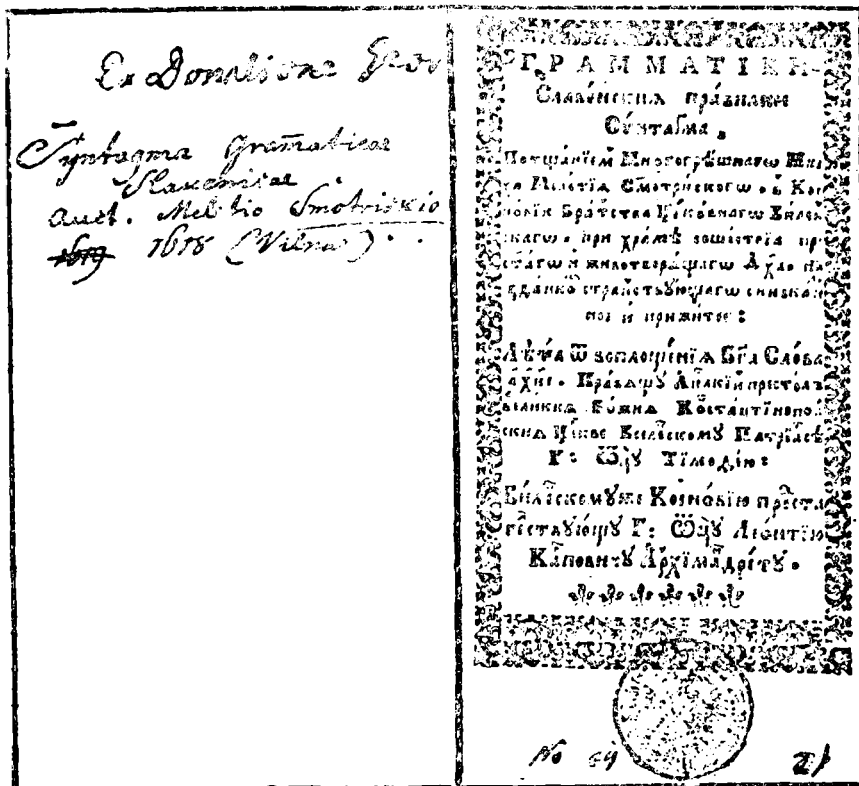 Ex Donatione
Syntagma Gram̄aticae
Slavenicae
auct. Meletio Smotriskio
1619 1618 (Vilnae)
ГРАММАТІКИ
Славе́нскиѧ пра́вилное
Сѵ́нтаґма.
Потща́нїемъ Многогрѣ́шнагѡ Мни
ха Меле́тїѧ Смотри́скогѡ. в̾ Кої
но́вїи Бра́тства Цр҃ко́внагѡ Виле́н
скагѡ. при хра́мѣ соше́ствїѧ пр
ст҃а́гѡ и животворѧ́щагѡ
стра́нствꙋющагѡ сниска
но и прижито:
Лѣ́та ѿ воплоще́нїѧ Бг҃а Сло́ва
҂ахѳі. Пра́вѧщꙋ Апⷭ҇лкїй престолъ
вели́киѧ Бо́жїѧ Кѡстантїнопо́л
скиѧ Цр҃кве Виле́скомꙋ Патрїа́рсѣ
Г: Ѿцꙋ̀ Тїмоѳе́ю:
Виле́скомꙋже Коино́вїю предста
телствꙋ́ющꙋ Г: Ѿцꙋ̀ Лео́нтїю
Ка́рповичꙋ А́рхїмандрі́тꙋ.
No 69 21